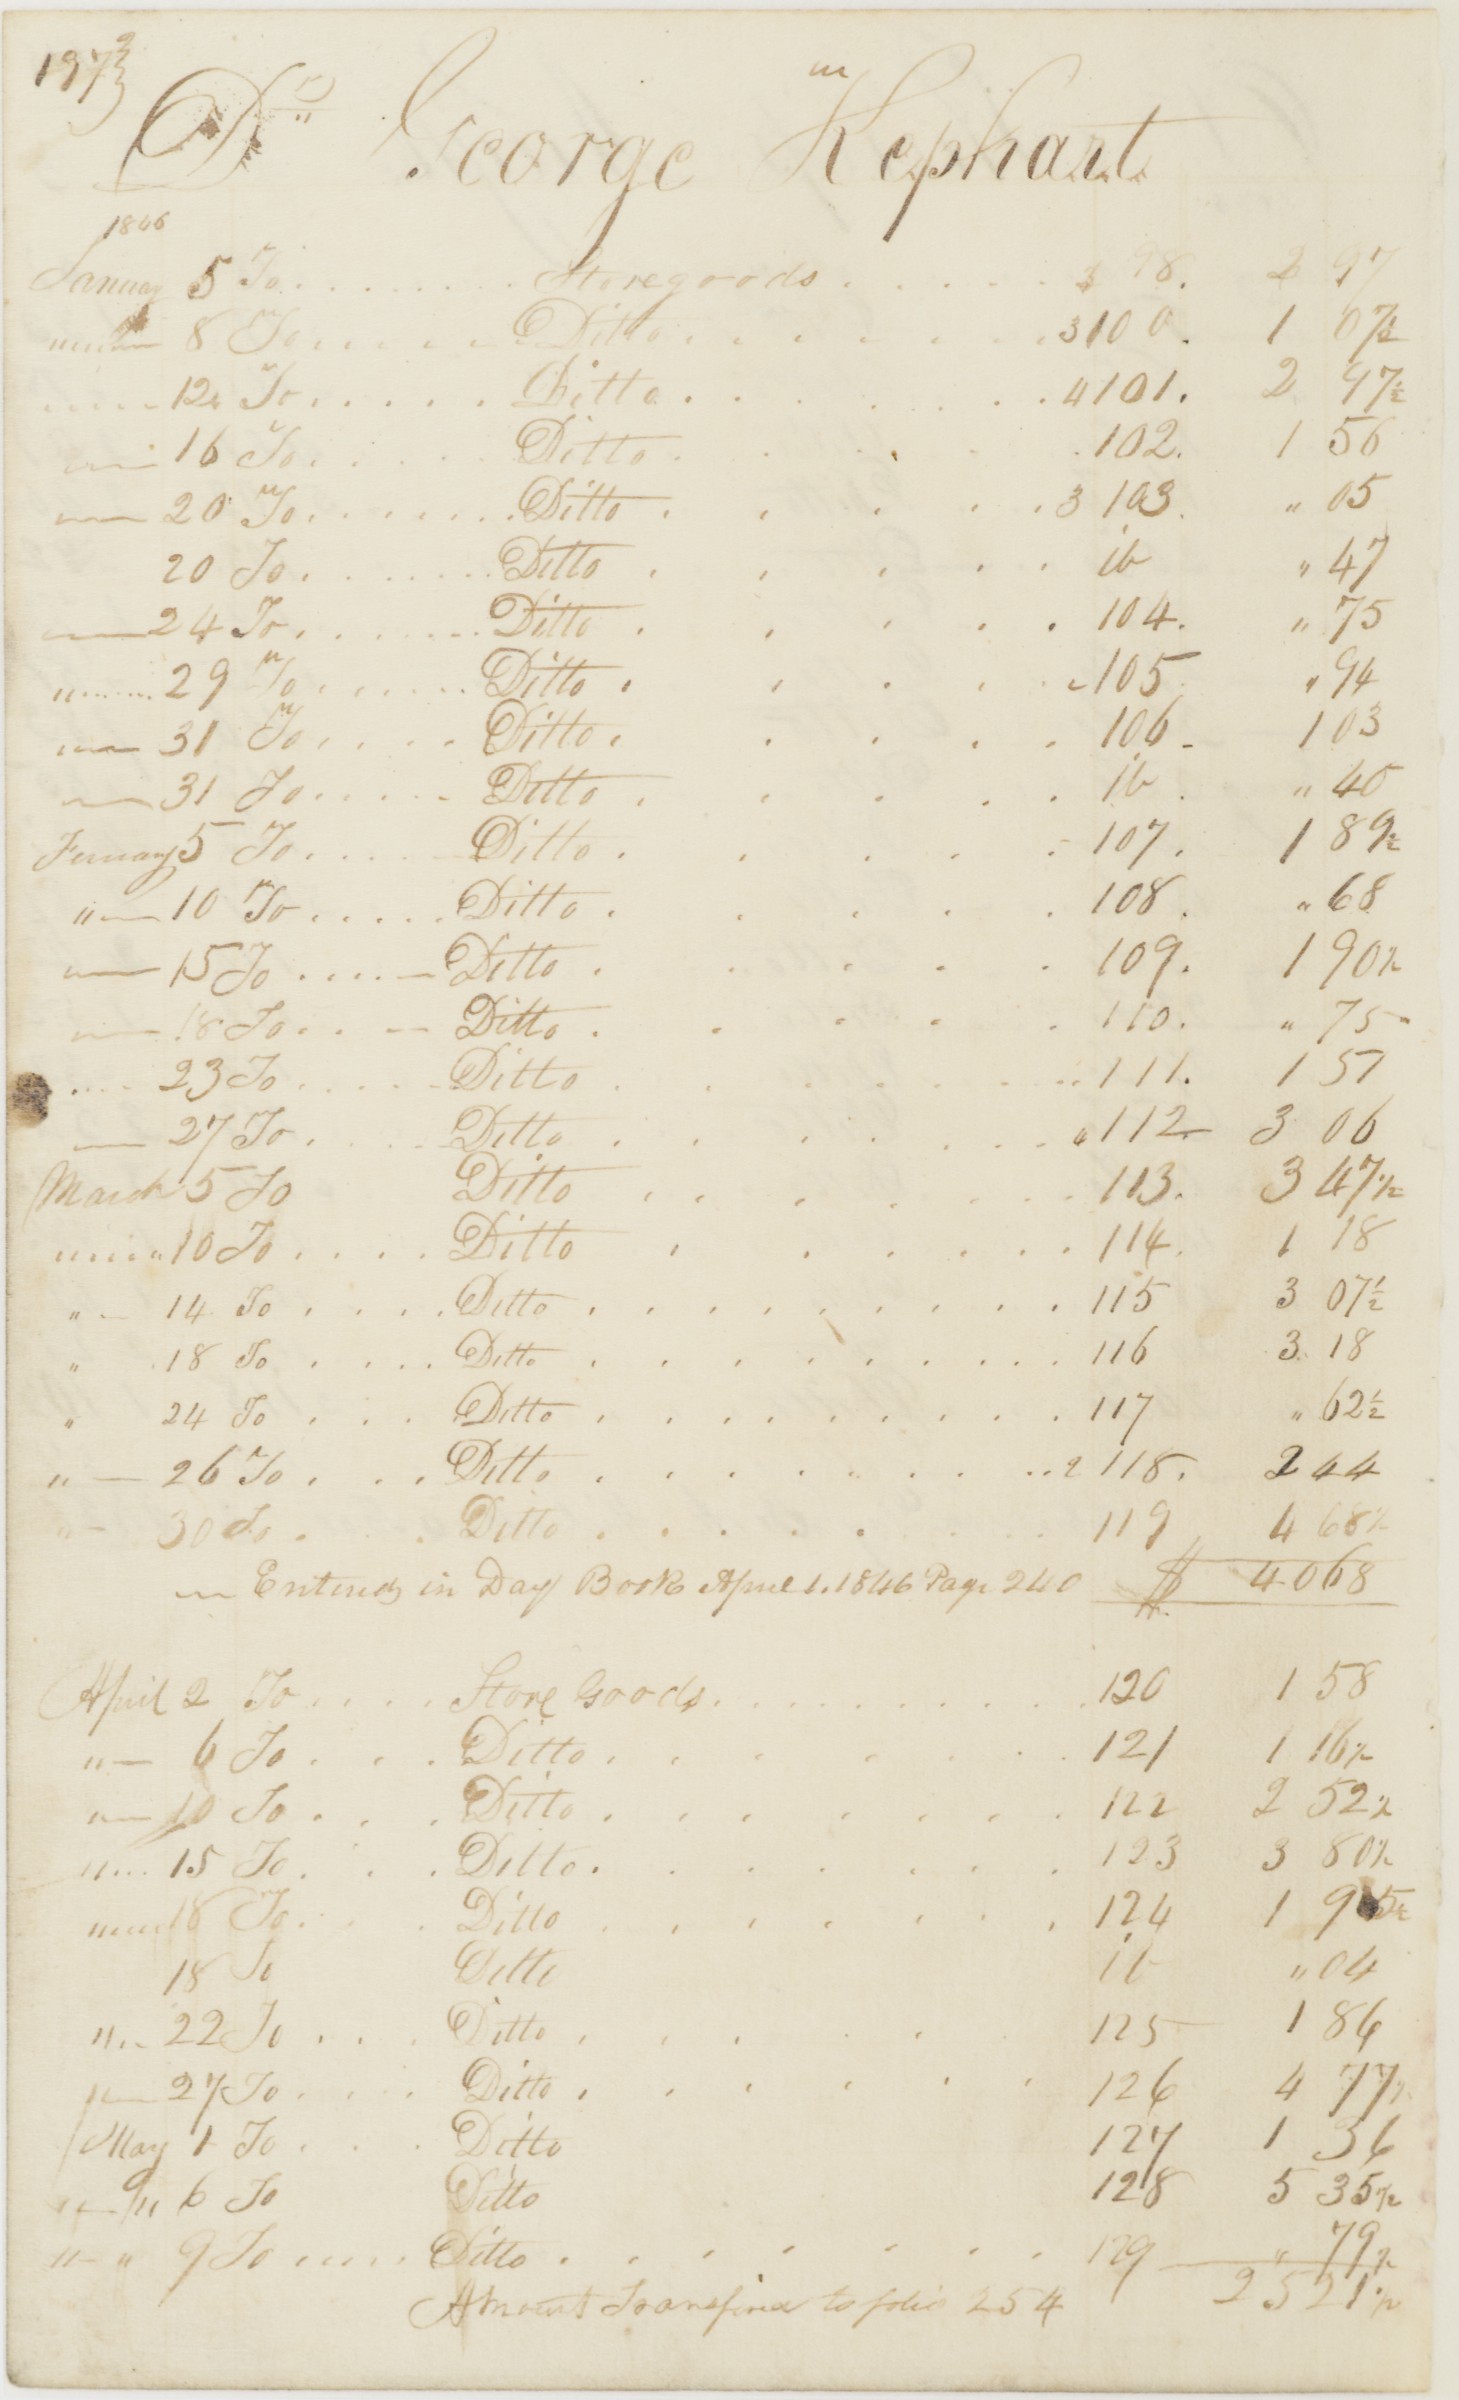 197
Dr George Kephart
1846
January 5 To Storegoods 3 98. 2 97
" 8 To Ditto 3 100. 1 07½
" 12 To Ditto 4 101. 2 97½
" 16 To Ditto 102. 1 56
" 20 To Ditto 3 103. " 05
20 To Ditto ib " 47
24 To Ditto 104. " 75
" 29 To Ditto 105 " 94
" 31 To Ditto 106 1 03
31 To Ditto ib. " 40
Feruary 5 To Ditto 107. 1 89½
" 10 To Ditto 108. " 68
15 To Ditto 109. 1 90½
18 To Ditto 110. " 75
23 To Ditto 111. 1 57
27 To Ditto 112 3 06
March 5 To Ditto 113. 3 47½
" 10 To Ditto 114. 1 18
" 14 To Ditto 115 3 07½
" 18 To Ditto 116 3 18
" 24 To Ditto 117 " 62½
" 26 To Ditto 2 118. 2 44
" 30 To Ditto 119 4 68½
Entered in Day Book April 1. 1846 Page 240 $ 40 68
April 2 To Store Goods 120 1 58
" 6 To Ditto 121 1 16½
" 10 To Ditto 122 2 52½
" 15 To Ditto 123 3 80½
" 18 To Ditto 124 1 95½
18 To Ditto ib " 04
" 22 To Ditto 125 1 86
" 27 To Ditto 126 4 77½
May 1 To Ditto 127 1 36
" " 6 To Ditto 128 5 35½
" " 9 To Ditto 129 " 79½
Amount Transfired to folio 254 25 21½